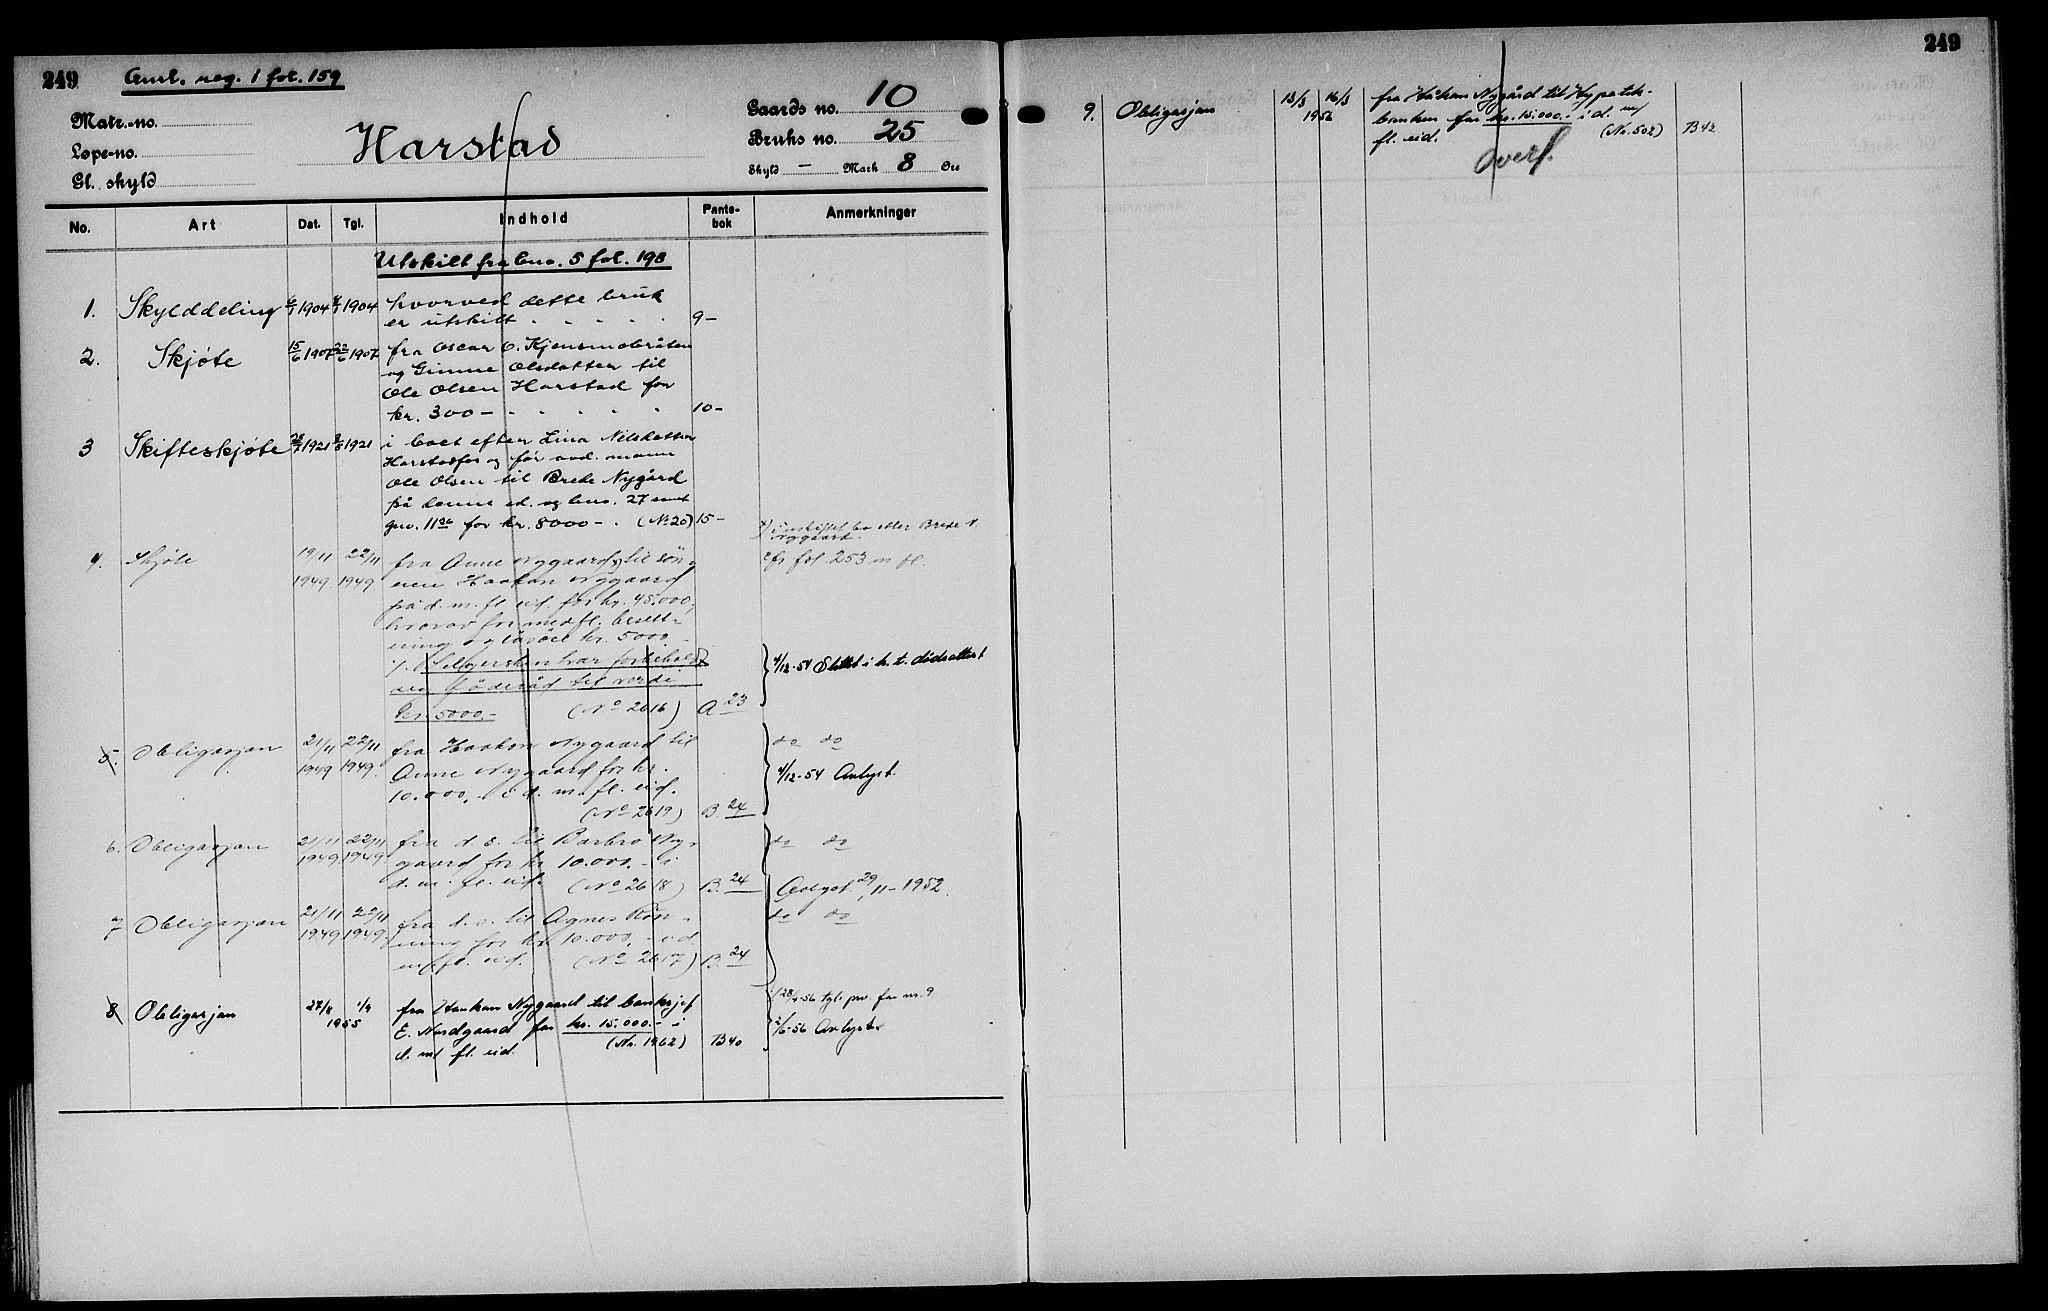 249
Aml. reg. 1 fol. 159
Matr.-no.
Løpe-no.
Gl. skyld
Harstad
Gaards no. 10
Bruks no. 25
Skyld — Mark 8 Øre
No. Art Dat. Tgl. Indhold Pante-bok Anmerkninger
Utskilt fra bno. 5 fol. 198
1. Skylddeling 1904 1904 hvorved dette bruk
er utskilt 9-
2. Skjøte 15/6 1907 22/6 1907 fra Oscar O.
og Olsdatter til
Ole Olsen Harstad for
kr. 300 - 10-
3 Skifteskjøte 1921 1921 i boet efter Lina Nilsdatter
og før avd. mann
Ole Olsen til Brede Nygård
på denne ed. og bno. 27 samt
gnr. 11 for kr. 8000 - (No 20) 15-
x) i uskiftet bo etter Brede N.
Nygaard.
4. Skjøte 19/11 22/11 fra Anne Nygaard x) til søn- cfr fol. 253 m fl.
1949. 1949. nen Haakon Nygaard
på d. m. fl. eid. for kr. 45.000,-
hvorav for medfl. besett-
ning og løsöre kr. 5000.-
½. Selgersken har forbeholdt
seg föderåd til verdi
kr. 5000.- (No 2616) A 23
4/12-54 Slettet i h. t. dødsattest
5. Obligasjon 21/11 22/11 fra Haakon Nygaard til do do
1949 1949. Anne Nygaard for kr.
10.000,- i d. m. fl. eid. 4/12-54 Avlyst.
(No 2619) B. 24
6. Obligasjon 21/11 22/11 fra d. s. til Barbro Ny- do do
1949. 1949. gaard for kr. 10.000.- i
d. m. fl. eid. (No 2618) B. 24 Avlyst 29/11-1952.
7 Obligasjon 21/11 22/11 fra d. s. til Agnes Røn- do do
1949 1949. ning for kr. 10.000,- i d.
m. fl. eid. (No 2617) B. 24
8 Obligasjon 27/8 1/9 fra Haakon Nygaard til banksjef 28/4-56 tgl. prv. for nr. 9
1955 E. Nordgaard for kr. 15.000.- i 2/6-56 Avlyst.
d. m/ fl. eid. (No. 1962) B40
249
9. Obligasjon 13/3 16/3 fra Håkon Nygård til Hypotek-
1956 banken for kr. 15.000.- i d. m/
fl. eid. (No. 502) B42
Overf.